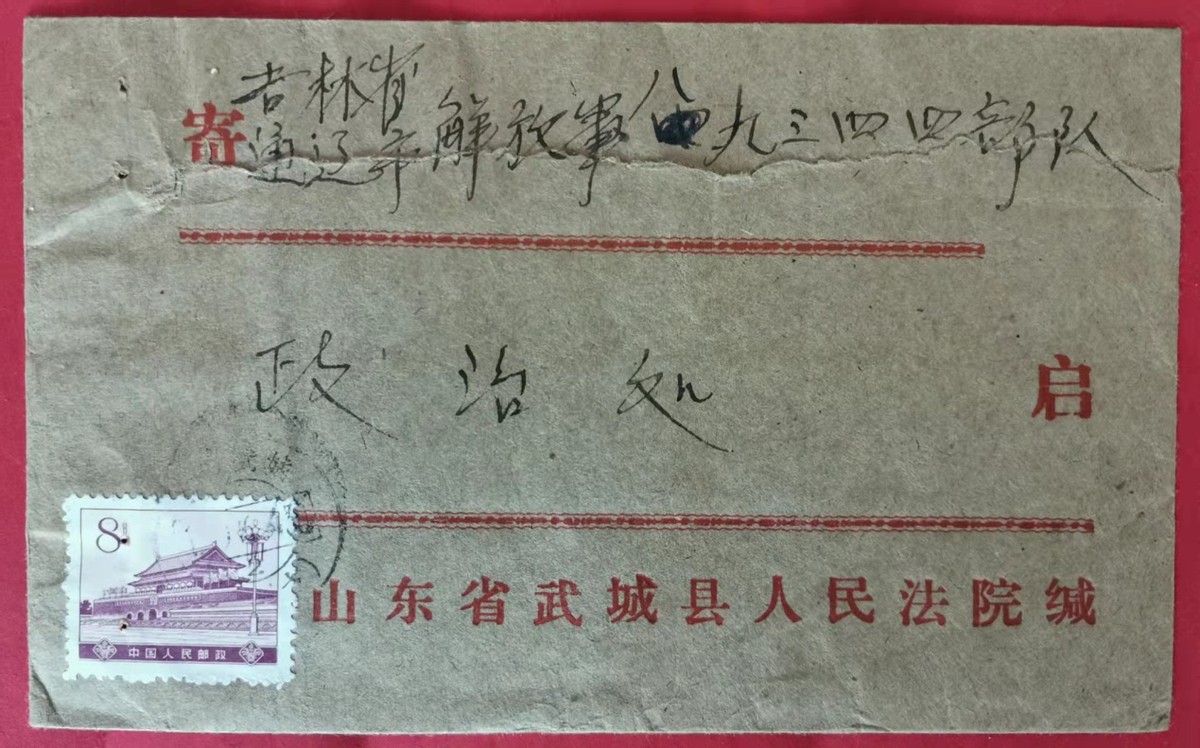 吉林省
寄 通辽市解放军八九三四四部队
政治处 启
8
中国人民邮政
山东省武城县人民法院缄